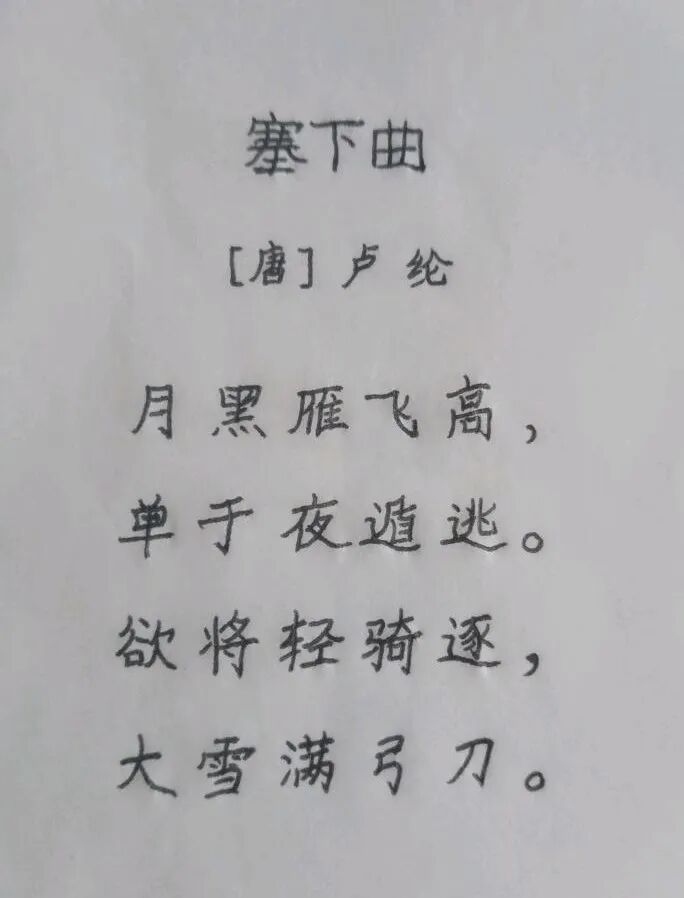 塞下曲
[唐]卢纶
月黑雁飞高，
单于夜遁逃。
欲将轻骑逐，
大雪满弓刀。